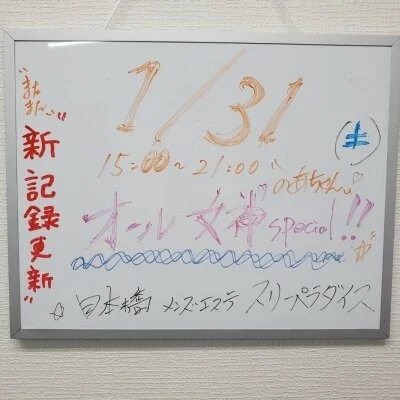 1/31
(土)
15:00~21:00
のあちゃん♡
オール女神special!!
新記録更新"
☆日本橋 メンズエステ スリーパラダイス